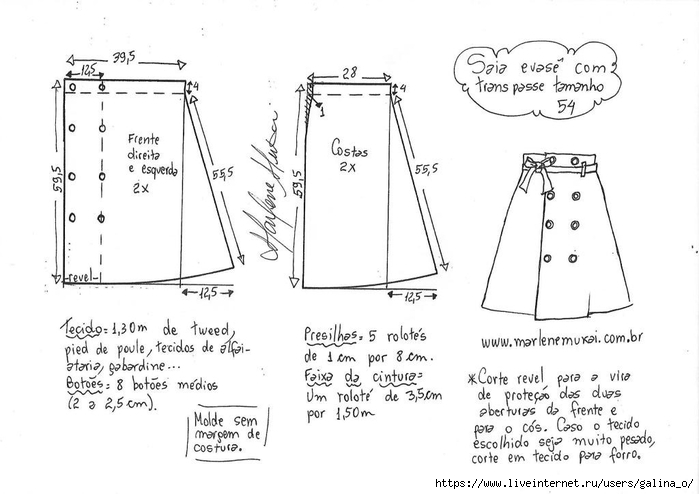 Saia evasê com
transpasse tamanho
54
39,5
12,5
4
59,5
Frente
direita
e esquerda
2x
55,5
revel
12,5
Marlene Mukai
28
4
1
Costas
2x
59,5
55,5
12,5
Tecido= 1,30m de tweed,
pied de poule, tecidos de alfai-
ataria, gabardine...
Botões= 8 botões médios
(2 a 2,5cm).
Molde sem
margem de
costura.
Presilhas= 5 rolotés
de 1 cm por 8 cm.
Faixa da cintura=
Um roloté de 3,5cm
por 1,50m
www.marlenemukai.com.br
*Corte revel para a vira
de proteção das duas
aberturas da frente e
para o cós. Caso o tecido
escolhido seja muito pesado,
corte em tecido para forro.
https://www.liveinternet.ru/users/galina_o/